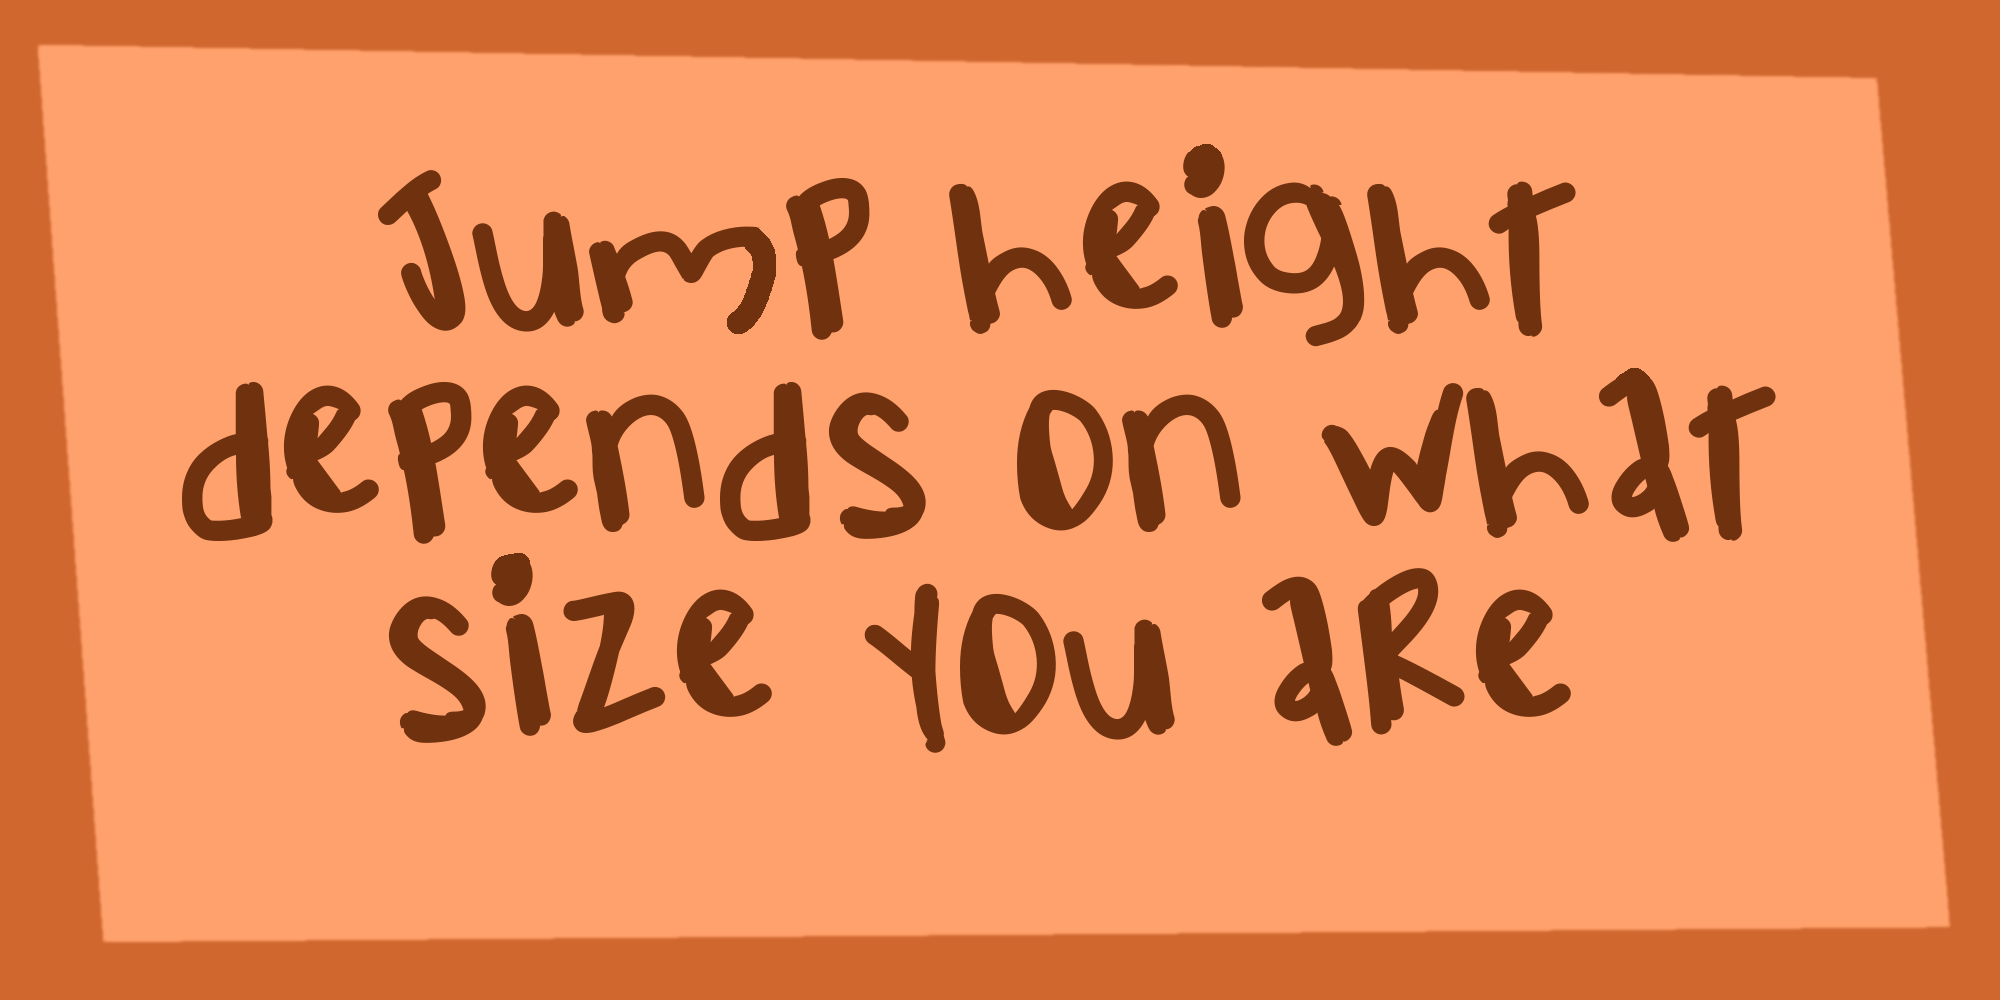 Jump height
depends on what
size you are